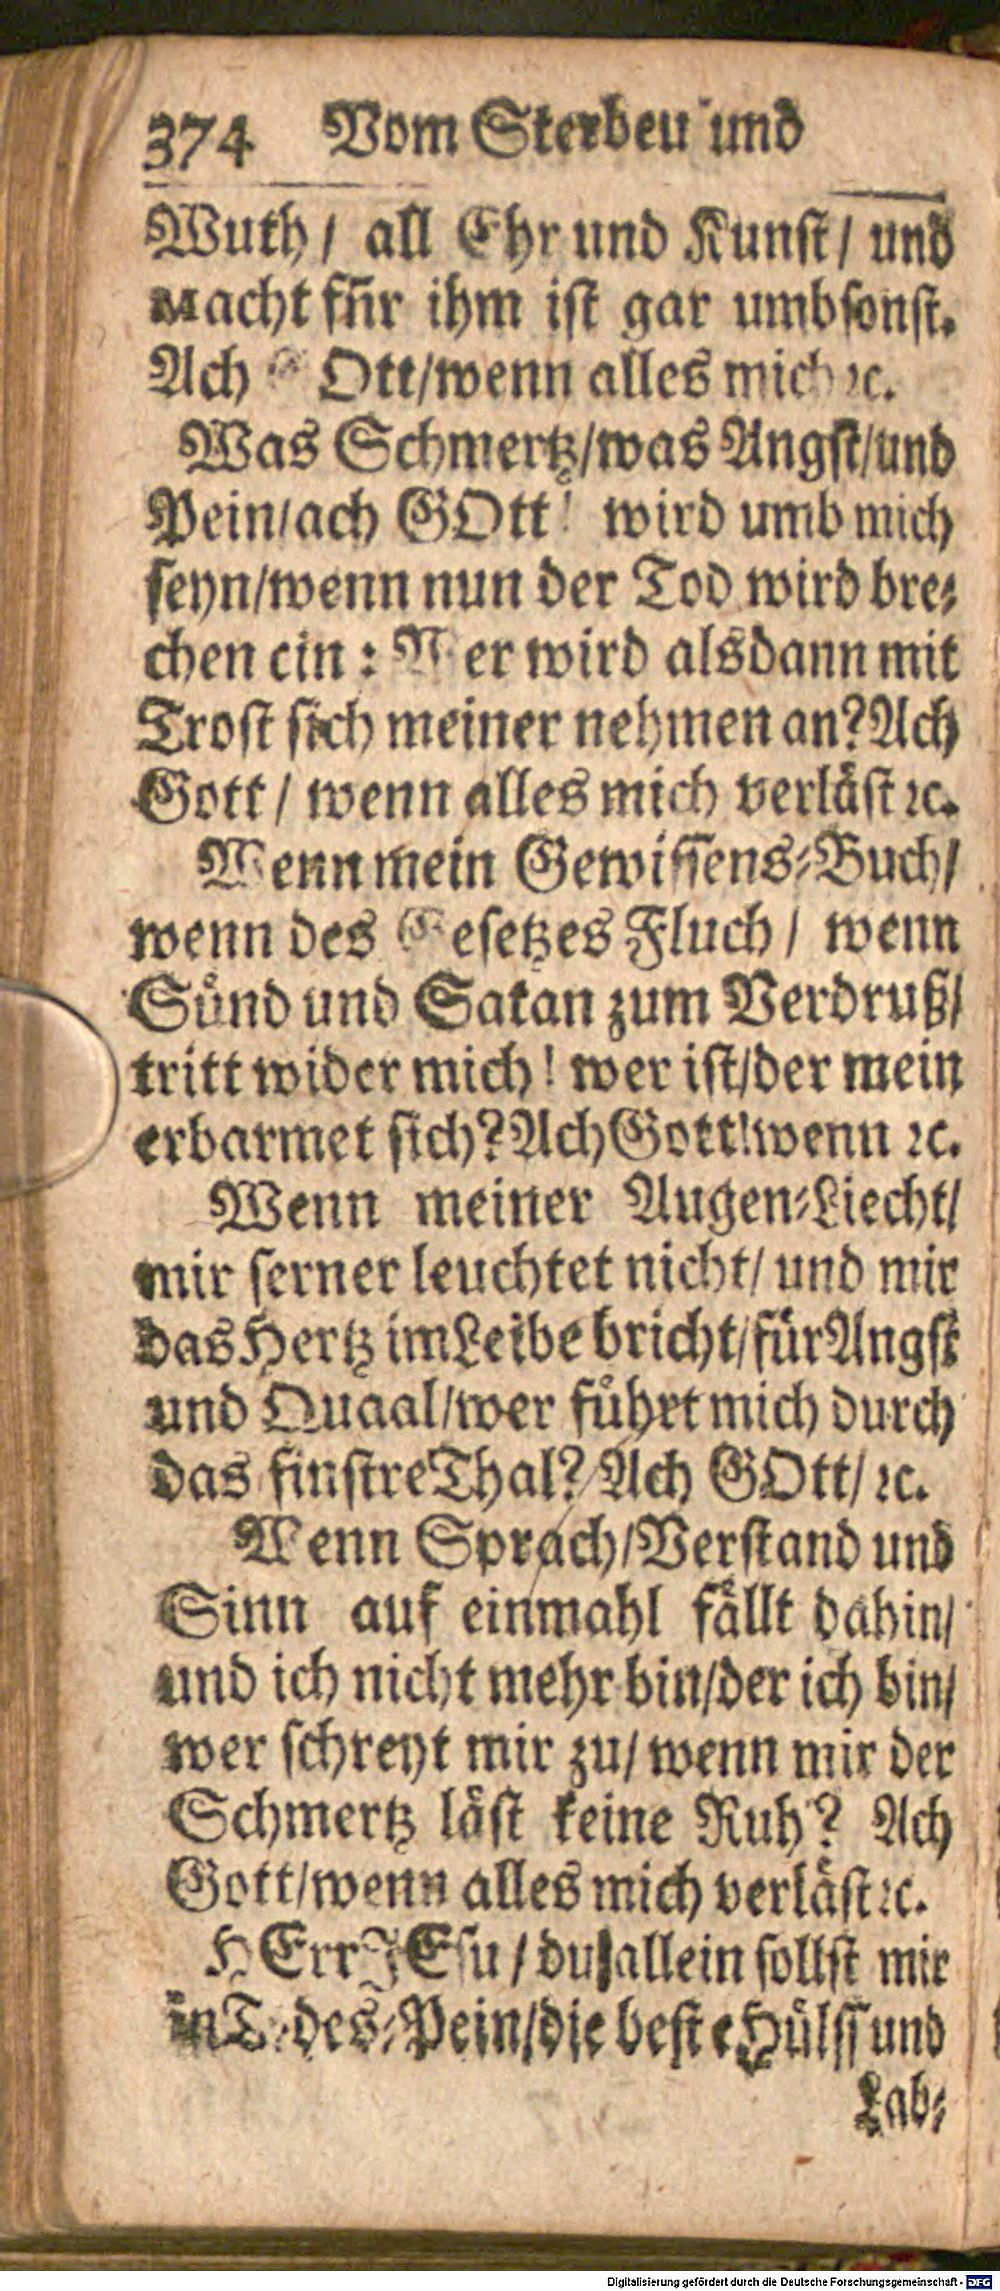 374 Vom Sterben und
Wuth / all Ehr und Kunst / und
Macht für ihm ist gar umbsonst.
Ach GOtt/wenn alles mich ꝛc.
Was Schmertz/was Angst/und
Pein/ach GOtt! wird umb mich
seyn/wenn nun der Tod wird bre⸗
chen ein : Wer wird alsdann mit
Trost sich meiner nehmen an? Ach
Gott / wenn alles mich verläst ꝛc.
Wenn mein Gewissens⸗Buch/
wenn des Gesetzes Fluch / wenn
Sünd und Satan zum Verdruß/
tritt wider mich! wer ist/der mein
erbarmet sich? Ach Gott!wenn ꝛc.
Wenn meiner Augen⸗Liecht/
mir ferner leuchtet nicht/ und mir
das Hertz im Leibe bricht/für Angst
und Quaal/wer führt mich durch
das finstre Thal? Ach GOtt/ ꝛc.
Wenn Sprach/Verstand und
Sinn auf einmahl fällt dahin/
und ich nicht mehr bin/der ich bin/
wer schreyt mir zu/ wenn mir der
Schmertz läst keine Ruh? Ach
Gott/wenn alles mich verläst ꝛc.
HErr JEsu / du allein sollst mir
in Todes⸗Pein/die beste Hülff und
Lab⸗
Digitalisierung gefördert durch die Deutsche Forschungsgemeinschaft - DFG